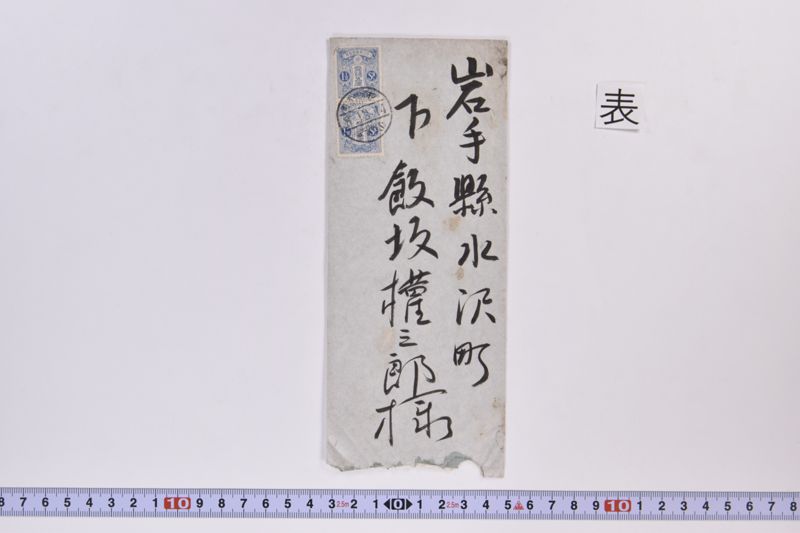 岩手縣水沢町
下飯坂權三郎様
表
1½ Sⁿ
8 7 6 5 4 3 2 1 10 9 8 7 6 5 4 3 2.5m 2 1 0 1 2 2.5m 3 4 5 6 7 8 9 10 1 2 3 4 5 6 7 8